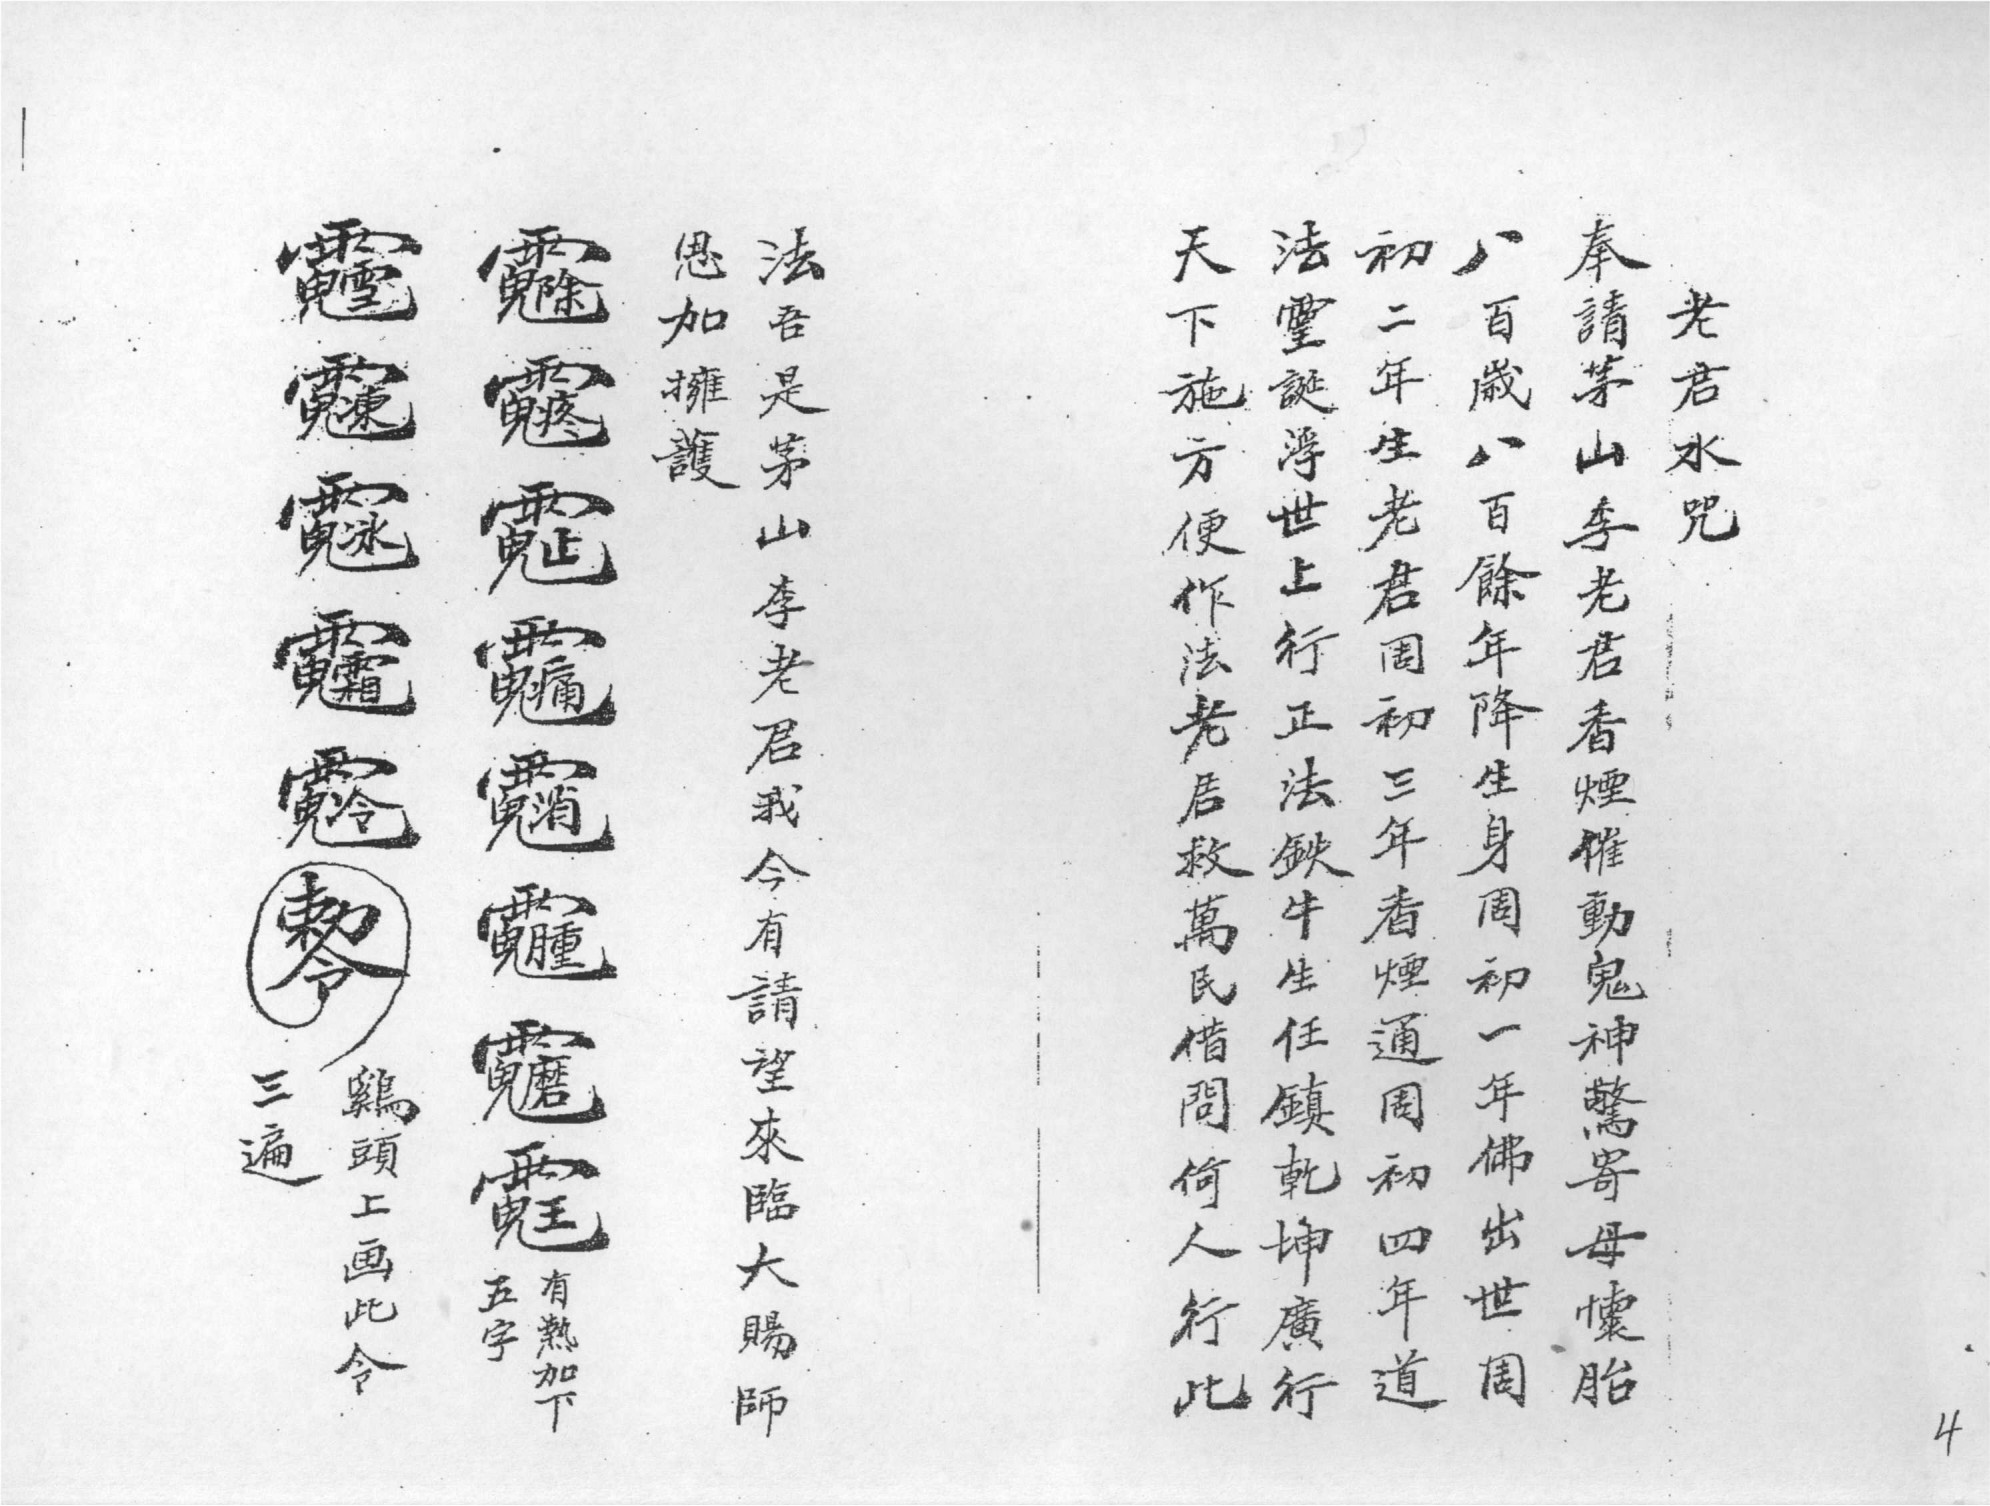 老君水咒
奉請茅山李老君香煙催動鬼神驚寄母懷胎
八百歲八百餘年降生身周初一年佛出世周
初二年生老君周初三年香煙通周初四年道
法靈誕浮世上行正法鉄牛生任鎮乾坤廣行
天下施方便作法老君救萬民借問何人行此
法吾是茅山李老君我今有請望來臨大賜師
恩加擁護
除疼止痛消腫磨王
有熱加下
五字
雪凍冰霜冷
勅令
鷄頭上画此令
三遍
4